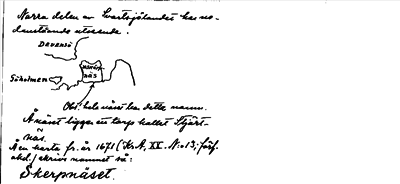 Norra delen av Svartsjölandet har ne-
danstående utseende.
DÄVENSÖ
NÄS
Obs! hela näset har detta namn.
Å näset ligger en torp kallat Stjärt-
näs.
Än karta fr. år 1671 (K.A. XX. N:o 13;
skrivs namnet så:
Skerpnäset.